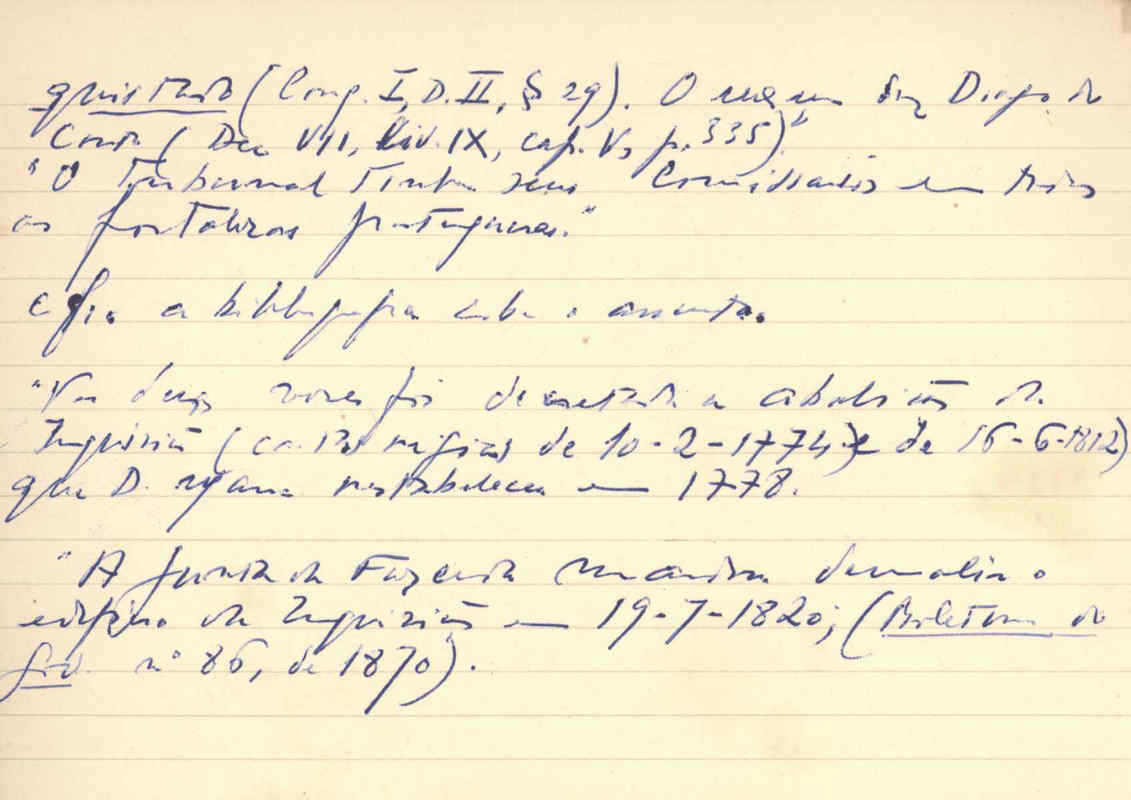 quistado (Conq. I, D. II, § 29). O mesmo diz Diogo do
Couto (Dec VII, liv. IX, cap. V, p. 335)"
"O Tribunal tinha seus Comissários em todas
as fortalezas portuguesas."
a bibliografia sobre o assunto.
"Por duas vezes foi decretada a abolição da
Inquisição (cartas régias de 10-2-1774) e de 16-6-1812)
que D. Maria restabeleceu em 1778.
"A Junta da Fazenda mandou demolir o
edifício da Inquisição em 19-7-1820; (Boletim do
Gov. nº 86, de 1870).